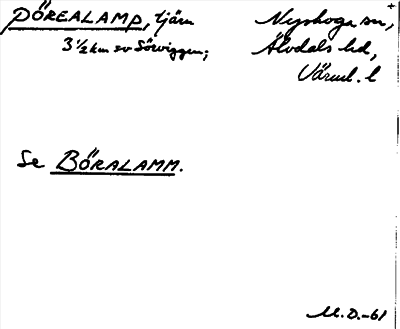 PÖREALAMP, tjärn
Nyskoga sn,
3 ½ km sv Sörviggen;
Älvdals hd,
Värml. l
Se BÖRALAMM.
M.O.-61